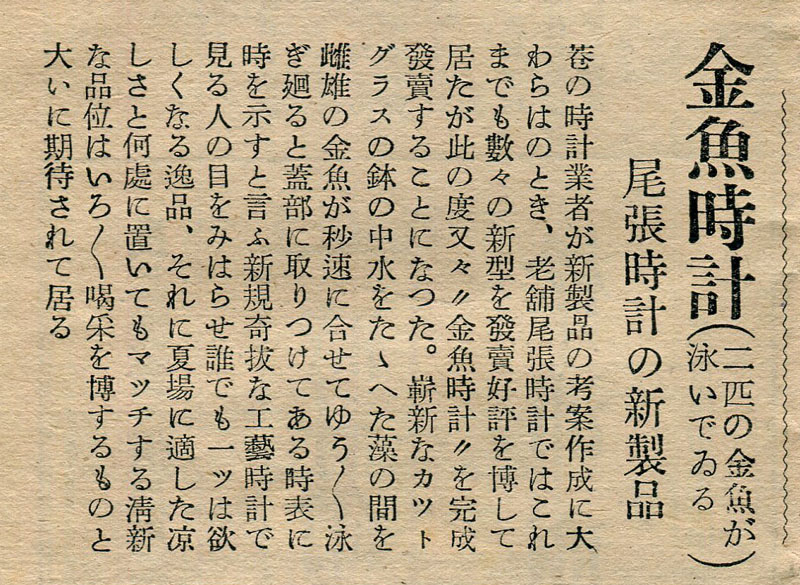 金魚時計(二匹の金魚が
泳いでゐる)
尾張時計の新製品
巷の時計業者が新製品の考案作成に大
わらはのとき、老舗尾張時計ではこれ
までも數々の新型を發賣好評を博して
居たが此の度又々〃金魚時計〃を完成
發賣することになつた。嶄新なカット
グラスの鉢の中水をたゝへた藻の間を
雌雄の金魚が秒速に合せてゆう〱泳
ぎ廻ると蓋部に取りつけてある時表に
時を示すと言ふ新規奇抜な工藝時計で
見る人の目をみはらせ誰でも一ッは欲
しくなる逸品、それに夏場に適した凉
しさと何處に置いてもマッチする淸新
な品位はいろ〱喝采を博するものと
大いに期待されて居る